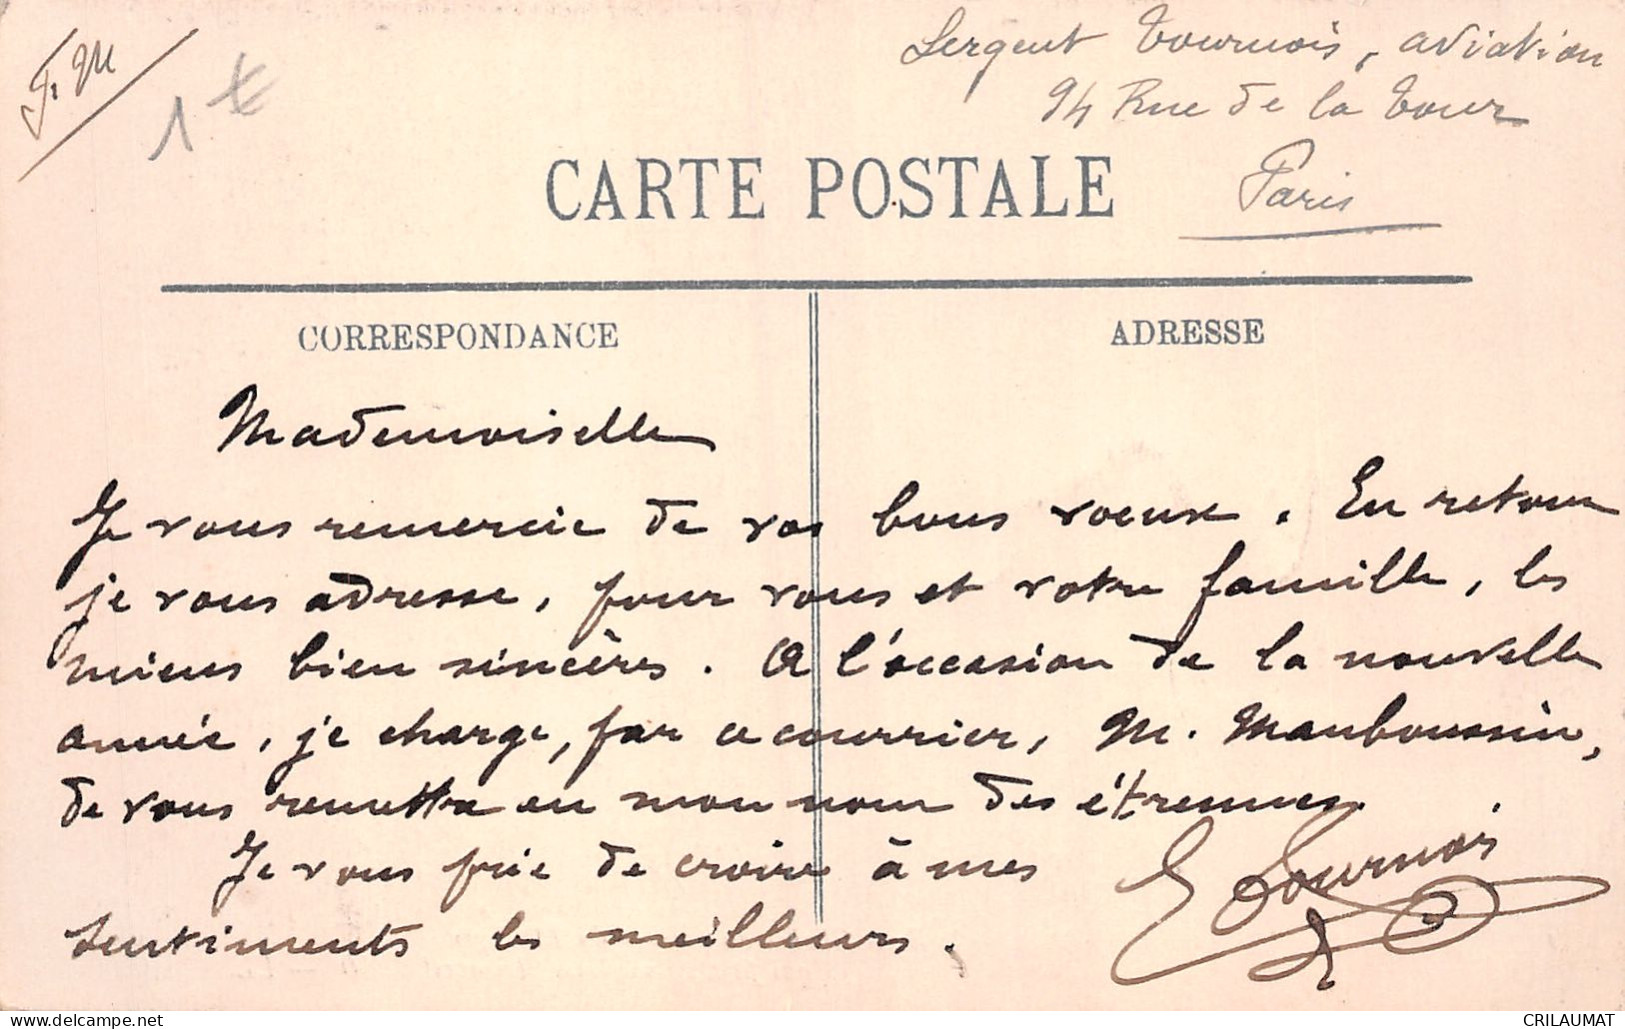 F. M
1 €
Sergent Tournois, aviation
94 Rue de la Tour
Paris
CARTE POSTALE
CORRESPONDANCE
ADRESSE
Mademoiselle
Je vous remercie de vos bons voeux. En retour
je vous adresse, pour vous et votre famille, les
miens bien sincères. A l'occasion de la nouvelle
année, je charge, par ce courrier, M. Mauboussin,
de vous remettre en mon nom des étrennes.
Je vous prie de croire à mes
sentiments les meilleurs.
Tournois
CRILAUMAT